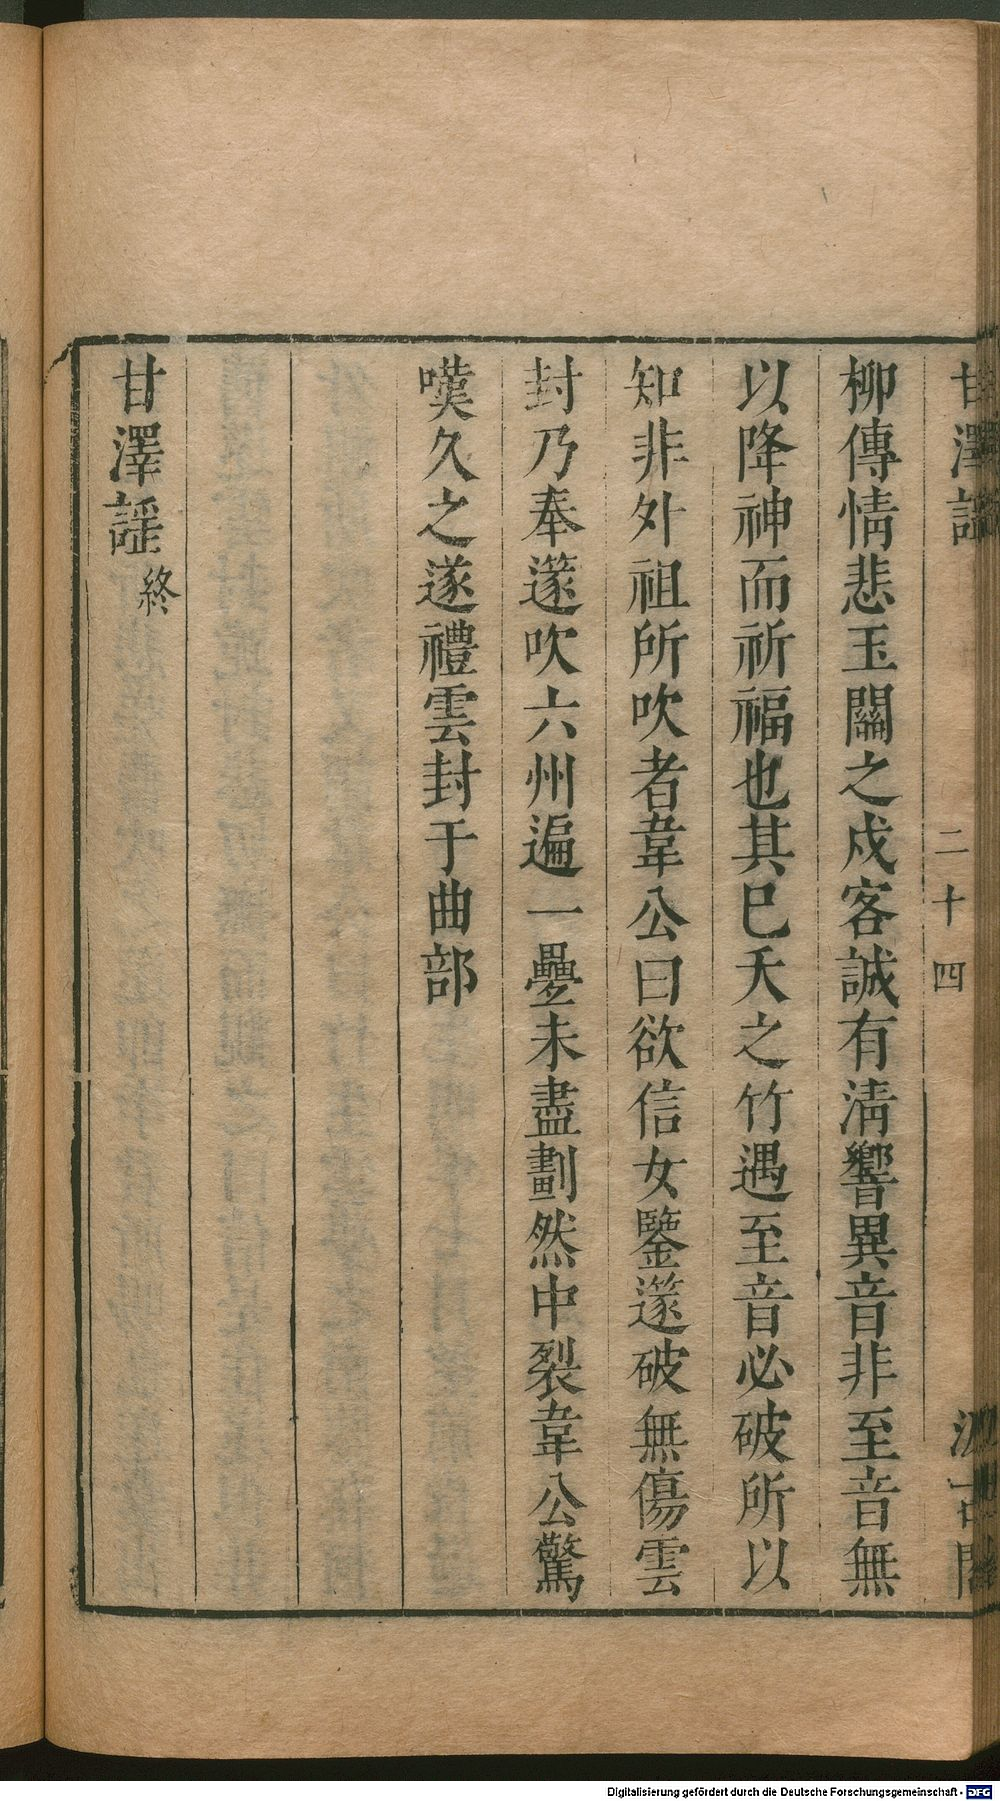 甘澤謠
二十四
汲古閣
柳傳情悲玉關之戍客誠有清響異音非至音無
以降神而祈福也其已夭之竹遇至音必破所以
知非外祖所吹者韋公曰欲信女鑒篴破無傷雲
封乃奉篴吹六州遍一疊未盡劃然中裂韋公驚
嘆久之遂禮雲封于曲部
甘澤謠終
Digitalisierung gefördert durch die Deutsche Forschungsgemeinschaft - DFG